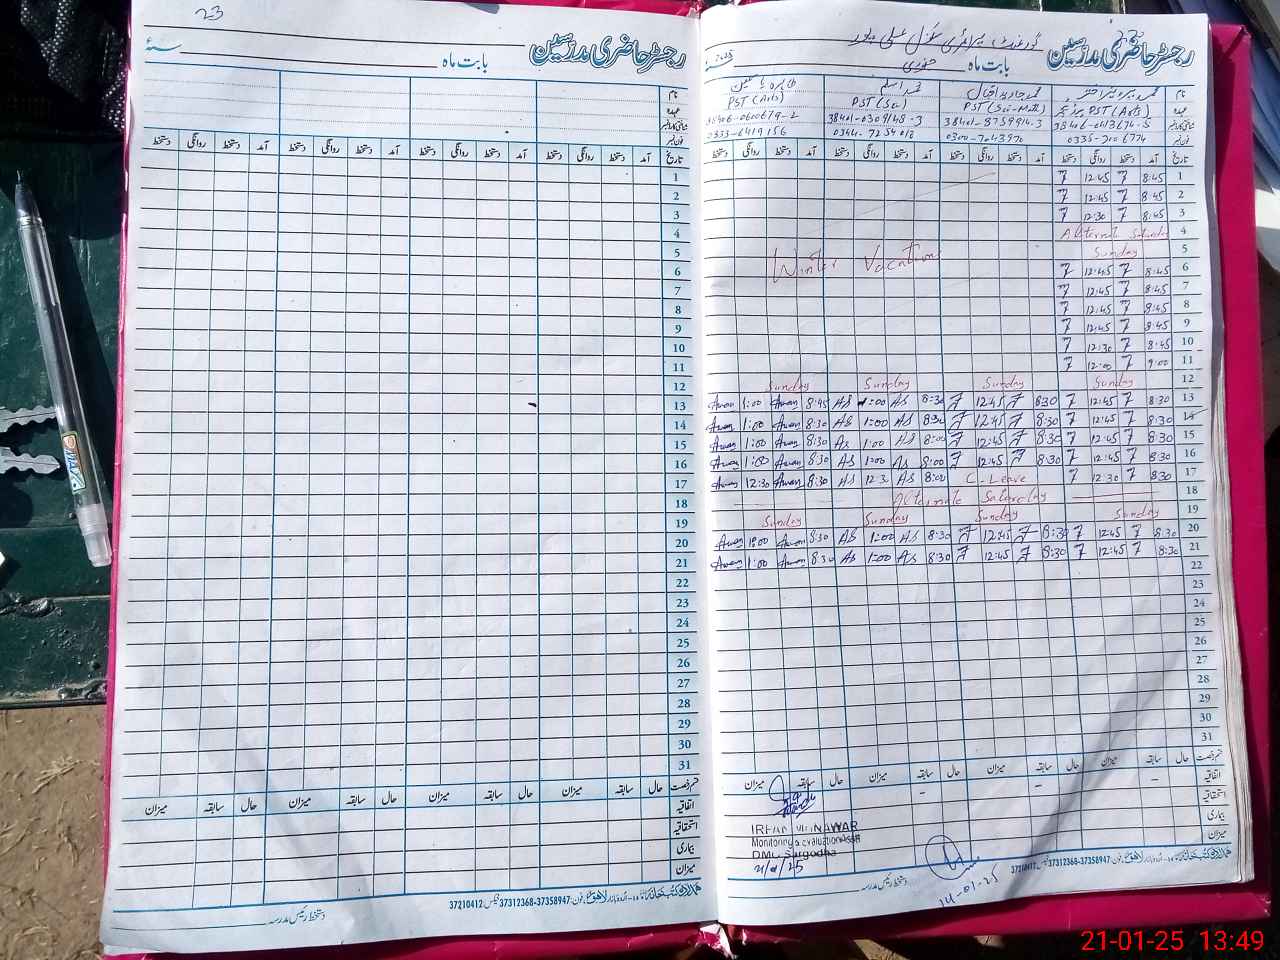 23
رجسٹر حاضری مدرسین
بابت ماہ سنہ
نام
عہدہ
شناختی کارڈ نمبر
فون نمبر
تاریخ آمد دستخط روانگی دستخط آمد دستخط روانگی دستخط آمد دستخط روانگی دستخط آمد دستخط روانگی دستخط
1
2
3
4
5
6
7
8
9
10
11
12
13
14
15
16
17
18
19
20
21
22
23
24
25
26
27
28
29
30
31
قسم رخصت حال سابقہ میزان حال سابقہ میزان حال سابقہ میزان حال سابقہ میزان
اتفاقیہ
استحقاقیہ
بیماری
میزان
فون: 37358947-37312368 فیکس 37210412
دستخط رئیس مدرسہ
رجسٹر حاضری مدرسین گورنمنٹ پرائمری سکول
بابت ماہ جنوری سنہ 2025
نام محمد جاوید اقبال محمد اسلم
عہدہ PST (Arts) PST (Sci-Math) PST (Sci) PST (Arts)
شناختی کارڈ نمبر 38401-8759914-3 38401-0309148-3
فون نمبر 0344-7254018 0333-6419156
تاریخ آمد دستخط روانگی دستخط آمد دستخط روانگی دستخط آمد دستخط روانگی دستخط آمد دستخط روانگی دستخط
1 8:45 12:45
2 8:45 12:45
3 8:45 12:30
4 Alternat Saturday
5 Sunday
Winter Vacation
6 8:45 12:45
7 8:45 12:45
8 8:45 12:45
9 8:45 12:45
10 8:45 12:30
11 9:00 12:00
12 Sunday Sunday Sunday Sunday
13 8:30 12:45 8:30 12:45 8:30 AS 1:00 AS 8:45 Awan 1:00 Awan
14 8:30 12:45 8:30 12:45 8:30 AS 1:00 AS 8:30 Awan 1:00 Awan
15 8:30 12:45 8:30 12:45 8:00 AS 1:00 AS 8:30 Awan 1:00 Awan
16 8:30 12:45 8:30 12:45 8:00 AS 1:00 AS 8:30 Awan 1:00 Awan
17 8:30 12:30 C-Leave 8:00 AS 12:3 AS 8:30 Awan 12:30 Awan
18 Alternate Saturday
19 Sunday Sunday Sunday Sunday
20 8:30 12:45 8:30 12:45 8:30 AS 1:00 AS 8:30 Awan 1:00 Awan
21 8:30 12:45 8:30 12:45 8:30 AS 1:00 AS 8:30 Awan 1:00 Awan
22
23
24
25
26
27
28
29
30
31
قسم رخصت حال سابقہ میزان حال سابقہ میزان حال سابقہ میزان حال سابقہ میزان
اتفاقیہ
استحقاقیہ
بیماری
میزان
IRFAN MUNAWAR
Monitoring & Evaluation Asstt
DMO Sargodha
21/01/25
14-01-25
فون: 37358947-37312368 فیکس 37210412
دستخط رئیس مدرسہ
21-01-25 13:49